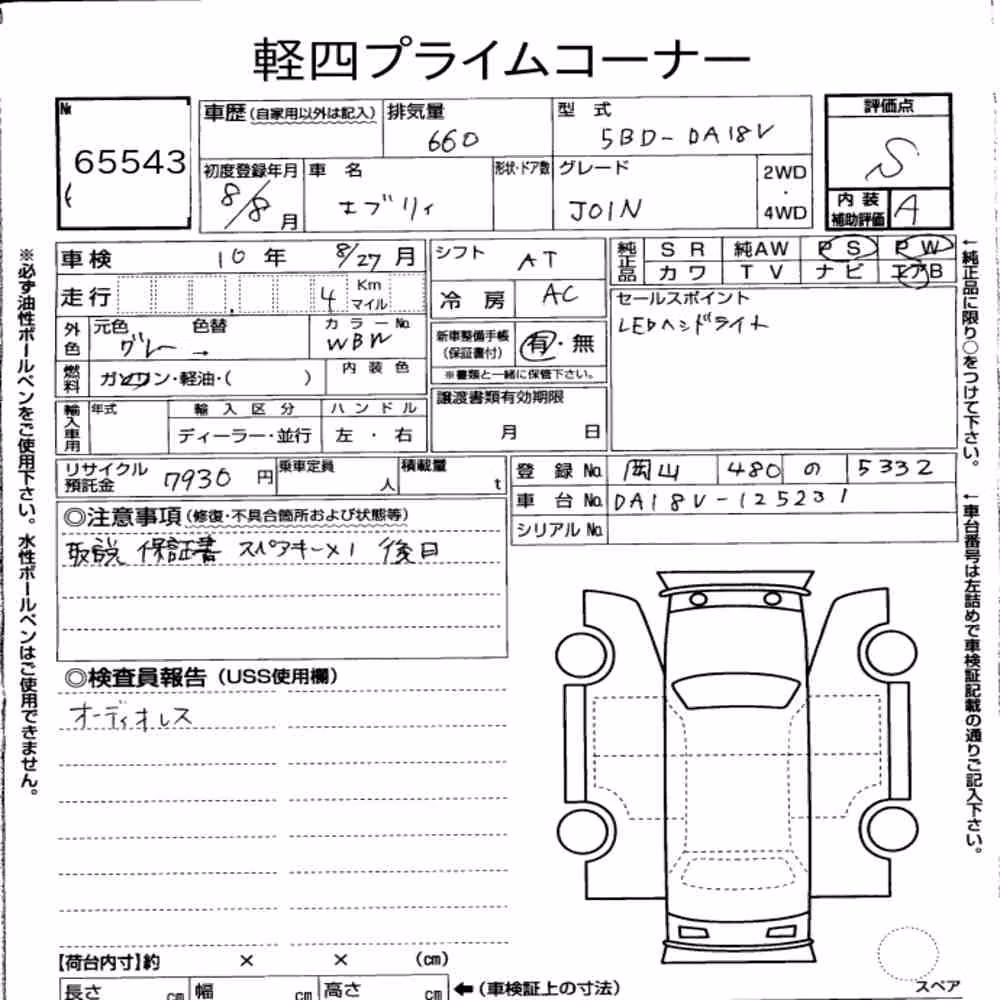 軽四プライムコーナー
№
65543
車歴(自家用以外は記入) 排気量 型式
660 5BD-DA18V
初度登録年月 車名 形状・ドア数 グレード 2WD・4WD
8/8月 エブリィ JOIN
評価点
S
内装補助評価 A
車検 10年 8/27月
走行 4 Km マイル
外色 元色 色替 カラーNo.
グレー → WBW
燃料 ガソリン・軽油・( ) 内装色
輸入車用 年式 輸入区分 ハンドル
ディーラー・並行 左・右
シフト AT
冷房 AC
新車整備手帳(保証書付) 有・無
※書類と一緒に保管下さい。
譲渡書類有効期限
月 日
純正品 SR 純AW PS PW
カワ TV ナビ エアB
セールスポイント
LEDヘッドライト
リサイクル預託金 7930円 乗車定員 人 積載量 t
登録No. 岡山 480 の 5332
車台No. DA18V-125231
シリアルNo.
◎注意事項(修復・不具合箇所および状態等)
取説 保証書 スペアキー×1 後日
◎検査員報告(USS使用欄)
オーディオレス
【荷台内寸】約 × × (cm)
長さ cm 幅 cm 高さ cm ←(車検証上の寸法)
スペア
※必ず油性ボールペンをご使用下さい。水性ボールペンはご使用できません。
←純正品に限り○をつけて下さい。
←車台番号は左詰めで車検証記載の通りご記入下さい。